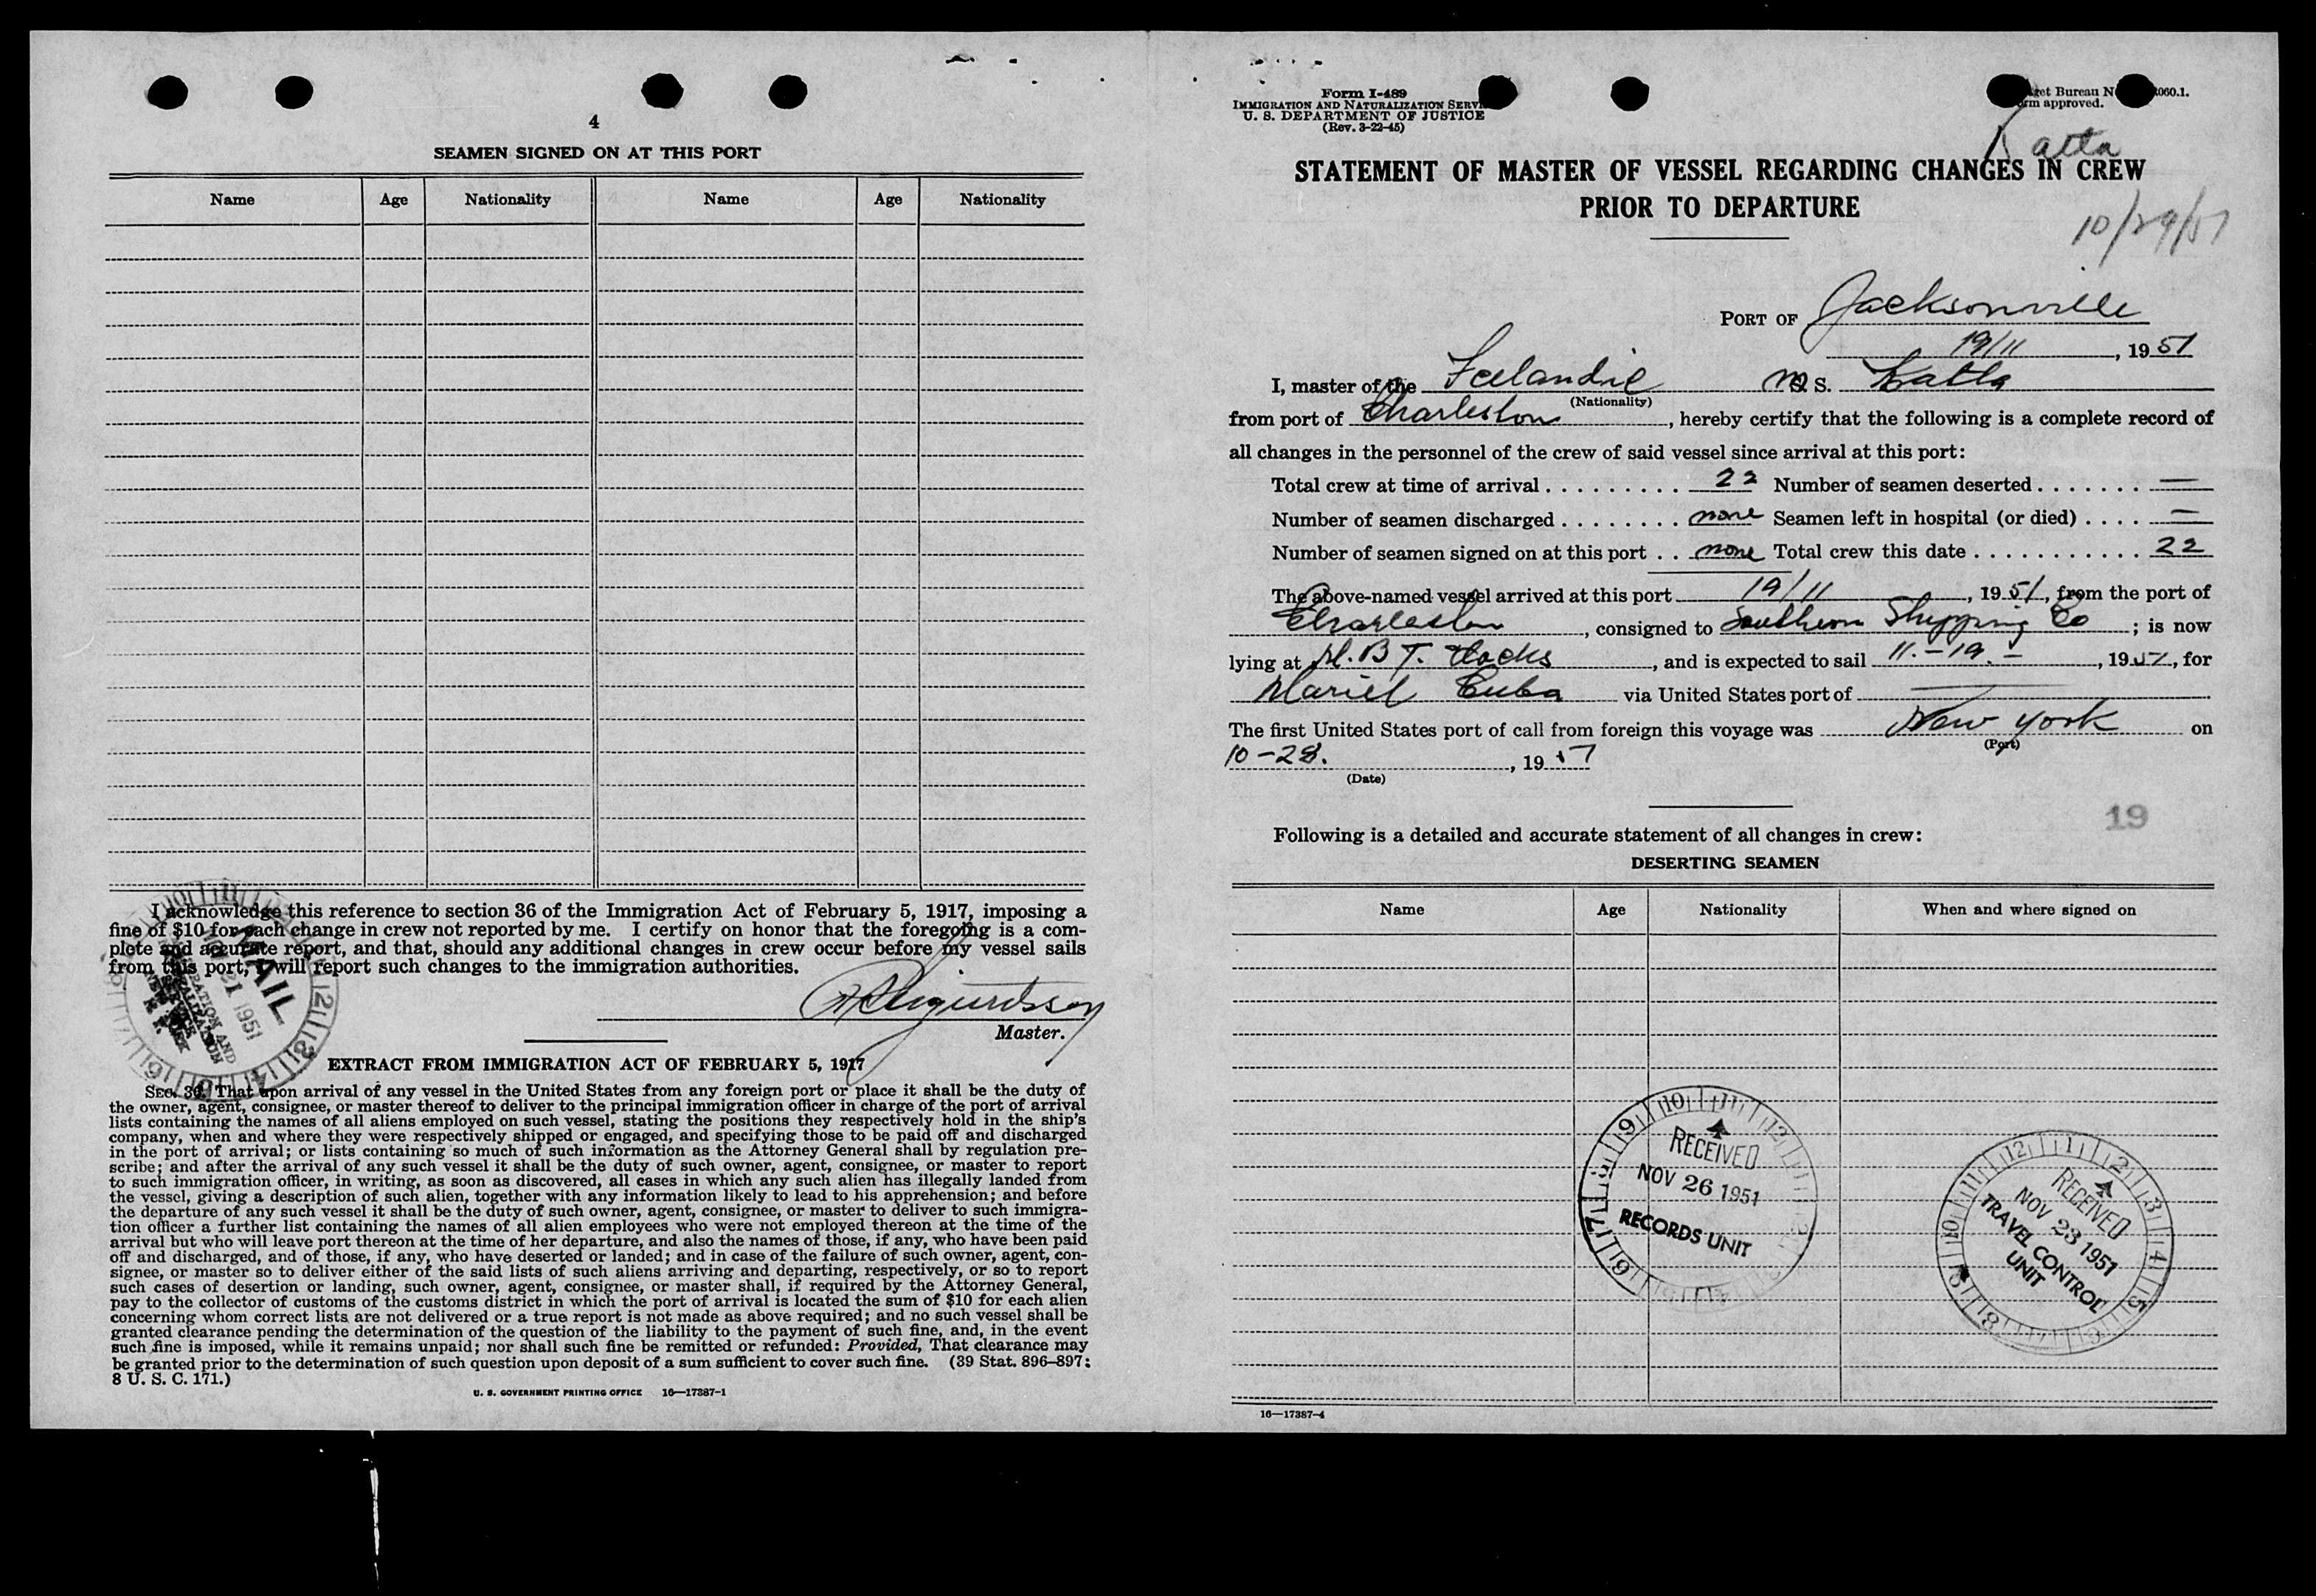 4
SEAMEN SIGNED ON AT THIS PORT
Name Age Nationality Name Age Nationality
I acknowledge this reference to section 36 of the Immigration Act of February 5, 1917, imposing a
fine of $10 for each change in crew not reported by me. I certify on honor that the foregoing is a com-
plete and accurate report, and that, should any additional changes in crew occur before my vessel sails
from this port, I will report such changes to the immigration authorities.
MAIL
21 1951
Master.
EXTRACT FROM IMMIGRATION ACT OF FEBRUARY 5, 1917
SEC. 36. That upon arrival of any vessel in the United States from any foreign port or place it shall be the duty of
the owner, agent, consignee, or master thereof to deliver to the principal immigration officer in charge of the port of arrival
lists containing the names of all aliens employed on such vessel, stating the positions they respectively hold in the ship's
company, when and where they were respectively shipped or engaged, and specifying those to be paid off and discharged
in the port of arrival; or lists containing so much of such information as the Attorney General shall by regulation pre-
scribe; and after the arrival of any such vessel it shall be the duty of such owner, agent, consignee, or master to report
to such immigration officer, in writing, as soon as discovered, all cases in which any such alien has illegally landed from
the vessel, giving a description of such alien, together with any information likely to lead to his apprehension; and before
the departure of any such vessel it shall be the duty of such owner, agent, consignee, or master to deliver to such immigra-
tion officer a further list containing the names of all alien employees who were not employed thereon at the time of the
arrival but who will leave port thereon at the time of her departure, and also the names of those, if any, who have been paid
off and discharged, and of those, if any, who have deserted or landed; and in case of the failure of such owner, agent, con-
signee, or master so to deliver either of the said lists of such aliens arriving and departing, respectively, or so to report
such cases of desertion or landing, such owner, agent, consignee, or master shall, if required by the Attorney General,
pay to the collector of customs of the customs district in which the port of arrival is located the sum of $10 for each alien
concerning whom correct lists are not delivered or a true report is not made as above required; and no such vessel shall be
granted clearance pending the determination of the question of the liability to the payment of such fine, and, in the event
such fine is imposed, while it remains unpaid; nor shall such fine be remitted or refunded: Provided, That clearance may
be granted prior to the determination of such question upon deposit of a sum sufficient to cover such fine. (39 Stat. 896-897;
8 U. S. C. 171.)
U. S. GOVERNMENT PRINTING OFFICE 16—17387-1
Form I-489
IMMIGRATION AND NATURALIZATION
U. S. DEPARTMENT OF JUSTICE
(Rev. 3-22-45)
Bureau
approved.
Katla
STATEMENT OF MASTER OF VESSEL REGARDING CHANGES IN CREW
PRIOR TO DEPARTURE
10/29/51
PORT OF Jacksonville
19/11, 1951
I, master of the Icelandic M S. Katla
(Nationality)
from port of Charleston, hereby certify that the following is a complete record of
all changes in the personnel of the crew of said vessel since arrival at this port:
Total crew at time of arrival . . . . . . . . . 22 Number of seamen deserted . . . . . . . —
Number of seamen discharged . . . . . . . . none Seamen left in hospital (or died) . . . . —
Number of seamen signed on at this port . . none Total crew this date . . . . . . . . . . . 22
The above-named vessel arrived at this port 19/11, 1951, from the port of
Charleston, consigned to Southern Shipping Co; is now
lying at docks, and is expected to sail 11.-19.-, 1951, for
Mariel Cuba via United States port of —.
The first United States port of call from foreign this voyage was New York on
(Port)
10-28., 19
(Date)
19
Following is a detailed and accurate statement of all changes in crew:
DESERTING SEAMEN
Name Age Nationality When and where signed on
RECEIVED
NOV 26 1951
RECORDS UNIT
RECEIVED
NOV 23 1951
TRAVEL CONTROL
UNIT
16—17387-4